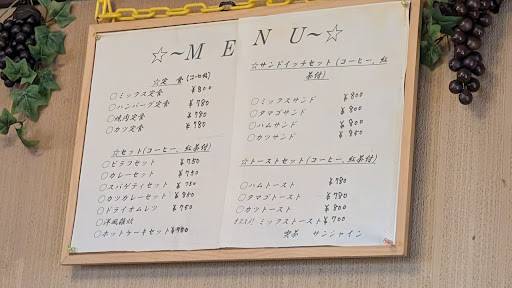 ☆~MENU~☆
☆定 食(コーヒー付)
○ミックス定食 ¥800
○ハンバーグ定食 ¥780
○焼肉定食 ¥780
○カツ定食 ¥780
☆セット(コーヒー、紅茶付)
○ピラフセット ¥750
○カレーセット ¥750
○スパゲティセット ¥750
○カツカレーセット ¥850
○ドライオムレツ ¥750
○和風雑炊
○ホットケーキセット
☆サンドイッチセット(コーヒー、紅茶付)
○ミックスサンド ¥800
○タマゴサンド ¥800
○ハムサンド ¥800
○カツサンド ¥850
☆トーストセット(コーヒー、紅茶付)
○ハムトースト ¥780
○タマゴトースト ¥780
○カツトースト ¥800
ミックストースト ¥700
喫茶 サンシャイン